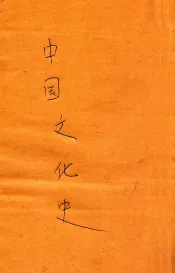 中国文化史